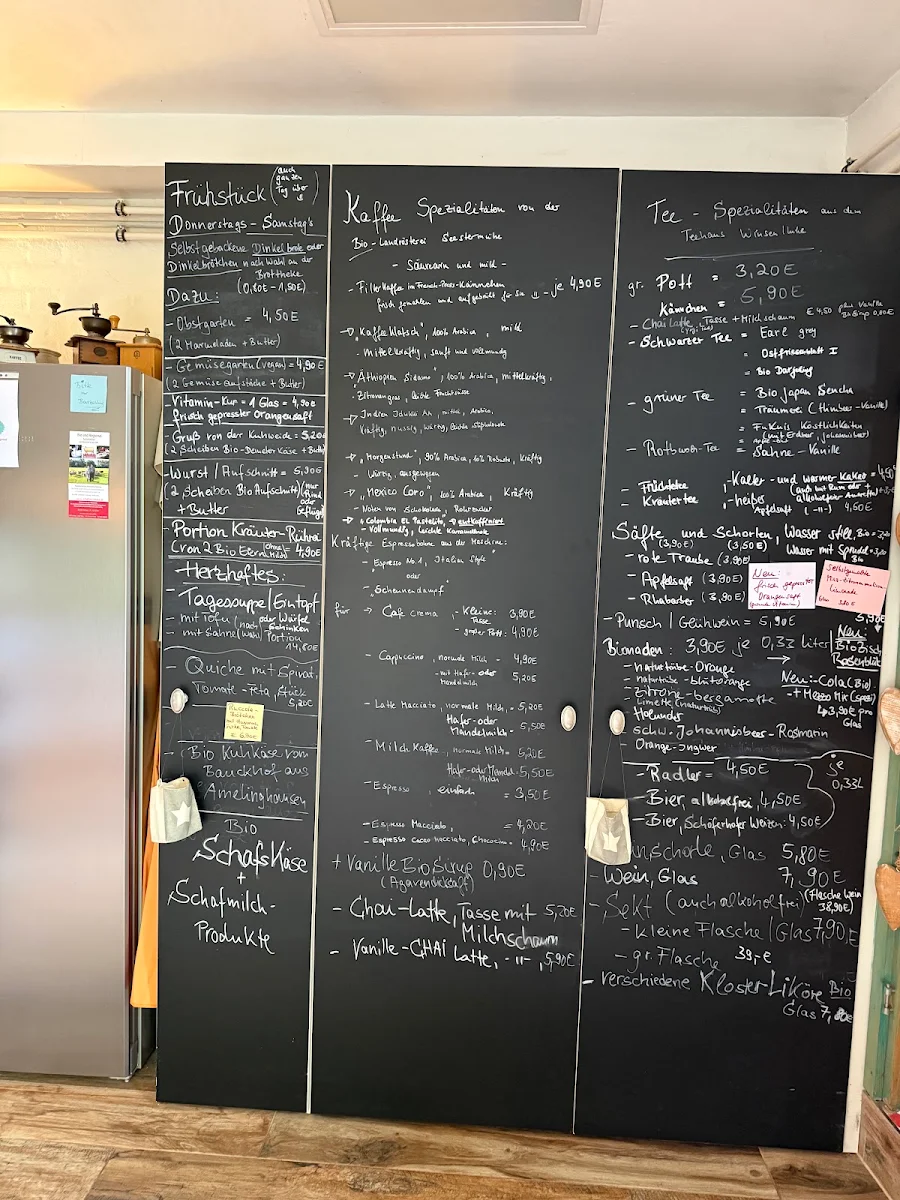 Frühstück (auch
ganzen
Tag über
Donnerstags - Samstag's
Selbstgebackene Dinkelbrote oder
Dinkelbrötchen nach Wahl an der
Brottheke
(0,80€ - 1,50€)
Dazu:
- Obstgarten = 4,50€
(2 Marmeladen + Butter)
- Gemüsegarten (vegan) = 4,90€
(2 Gemüse Aufstriche + Butter)
Vitamin-Kur = 1 Glas = 4,90€
frisch gepresster Orangensaft
- Gruß von der Kuhweide = 5,20€
(2 Scheiben Bio-Demeter Käse + Butter
- Wurst / Aufschnitt = 5,90€
(2 Scheiben Bio Aufschnitt) (nur
Rind
oder
Geflügel
+ Butter
Portion Kräuter-Rührei
(von 2 Bio Eiern) 4,90€
- Herzhaftes:
- Tagessuppe/Eintopf
- mit Tofu (nach oder Würfel
Schinken
- mit Sahne (Wahl) Portion
14,80€
- Quiche mit Spinat,
Tomate-Feta, Stück
5,20€
- (Bio Kuhkäse vom
Bauckhof aus
Amelinghausen
Bio
Schafskäse
+
Schafmilch-
Produkte
Kaffee Spezialitäten von der
Bio-Landrösterei Seestermühe
- Säurearm und mild -
- Filterkaffee in French-Press-Kännchen
frisch gemahlen und aufgebrüht für Sie - je 4,90€
→ "Kaffee Klatsch", 100% Arabica, mild
- Mittelkräftig, sanft und vollmundig
→ Äthiopien Sidamo", 100% Arabica, mittelkräftig,
- Zitronengras, leichte Fruchtsüsse
kräftig, nussig, würzig,
→ "Morgenstund", 90% Arabica, 10% Robusta, kräftig
- würzig, ausgewogen
→ "Mexico Coro", 100% Arabica, kräftig
- Noten von Schokolade,
→ Colombia EL Pastelito, → entkoffeiniert
- Vollmundig, leichte Karamellnote
Kräftige Espressobohne aus der Maschine:
- "Espresso No. 1, Italian Style"
oder
- "Scheunendampf"
für → Café crema, - Kleine: 3,90€
Tasse
- großer Pott: 4,90€
- Cappuccino, normale Milch - 4,90€
- mit Hafer- oder
Mandelmilch 5,20€
- Latte Macciato, normale Milch - 5,20€
Hafer- oder
Mandelmilch - 5,50€
- Milchkaffee, normale Milch = 5,20€
Hafer- oder Mandel-
milch - 5,50€
- Espresso, einfach = 3,50€
- Espresso Macciato, = 4,20€
- Espresso Cacao Macciato, = 4,90€
+ Vanille BioSirup 0,90€
(Agavendicksaft)
- Chai-Latte, Tasse mit 5,20€
Milchschaum
- Vanille-CHAI Latte, -"- , 5,90€
Tee - Spezialitäten aus dem
Teehaus Winsen/Luhe
gr. Pott = 3,20€
Kännchen = 5,90€
- Chai Latte, Tasse + Milchschaum € 4,50 plus Vanille
- Schwarzer Tee = Earl grey
= Ostfriesenblatt I
= Bio Darjeling
- grüner Tee = Bio Japan Sencha
= Träumer (Himbeer-Vanille)
= Fukuis Köstlichkeiten
(mit Erdbeer, Johannisbeer)
- Rotbusch-Tee = Sahne-Vanille
- Früchtetee
- Kräutertee
- Kalter- und warmer Kakao
- heißer
Apfelsaft (-"-) 4,60€
Säfte und Schorlen, Wasser still, Bio
(3,90€) (3,50€) Wasser mit Sprudel
- rote Traube (3,90€)
- Apfelsaft (3,90€)
- Rhabarber (3,90€)
Neu:
frisch gepresster
Orangensaft
Selbstgemachte
Limonade
- Punsch / Glühwein = 5,90€
Bionaden: 3,90€ je 0,33 liter
→
Neu:
Rosenblüte
- naturtrübe-Orange
- naturtrübe-blutorange
- Zitrone-bergamotte
Limette (naturtrüb)
- Holunder
- schw. Johannisbeer-Rosmarin
- Orange-Ingwer
Neu:-Cola (Bio)-
+ Mezzo Mix (Spezi)
3,90€ pro
Glas
- Radler = 4,50€
- Bier, alkoholfrei, 4,50€
- Bier, Schöferhofer Weizen: 4,50€
je
0,33L
Glas 5,80€
- Wein, Glas 7,90€
- Sekt (auch alkoholfrei) (Flasche Wein
38,90€)
- kleine Flasche / Glas 7,90€
- gr. Flasche 39,-€
- verschiedene Kloster-Liköre Bio
Glas